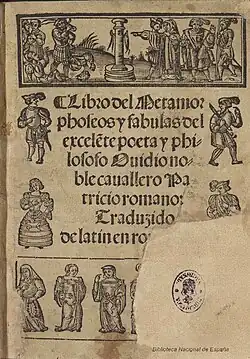 Libro del Metamor
phoseos y fabulas del
excelẽte poeta y phi
losofo Ouidio no
ble cauallero Pa
tricio romano:
Traduzido
de latin en ro
Biblioteca Nacional de España